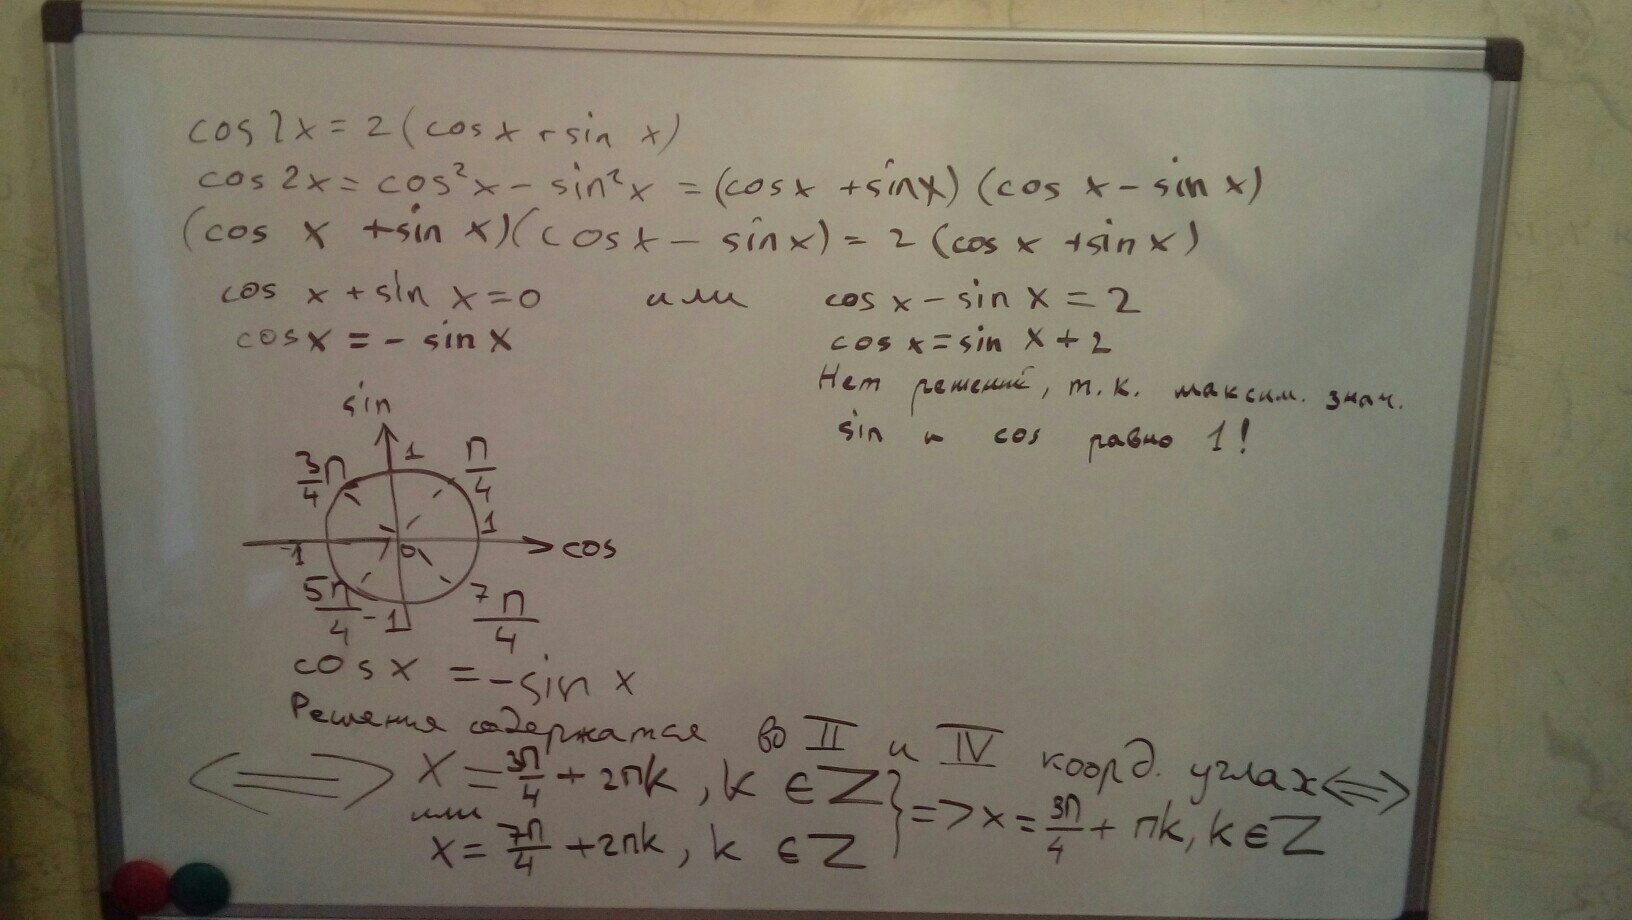 cos 2x = 2 (cos x + sin x)
cos 2x = cos²x − sin²x = (cos x + sin x) (cos x − sin x)
(cos x + sin x)(cos x − sin x) = 2 (cos x + sin x)
cos x + sin x = 0 или cos x − sin x = 2
cos x = − sin x cos x = sin x + 2
Нет решений, т.к. максим. знач.
sin и cos равно 1!
sin
3π/4 1 π/4
-1 0 1 cos
5π/4 -1 7π/4
cos x = − sin x
Решения содержатся во II и IV коорд. углах <=>
<=> x = 3π/4 + 2πk, k ∈ Z
или } => x = 3π/4 + πk, k ∈ Z
x = 7π/4 + 2πk, k ∈ Z